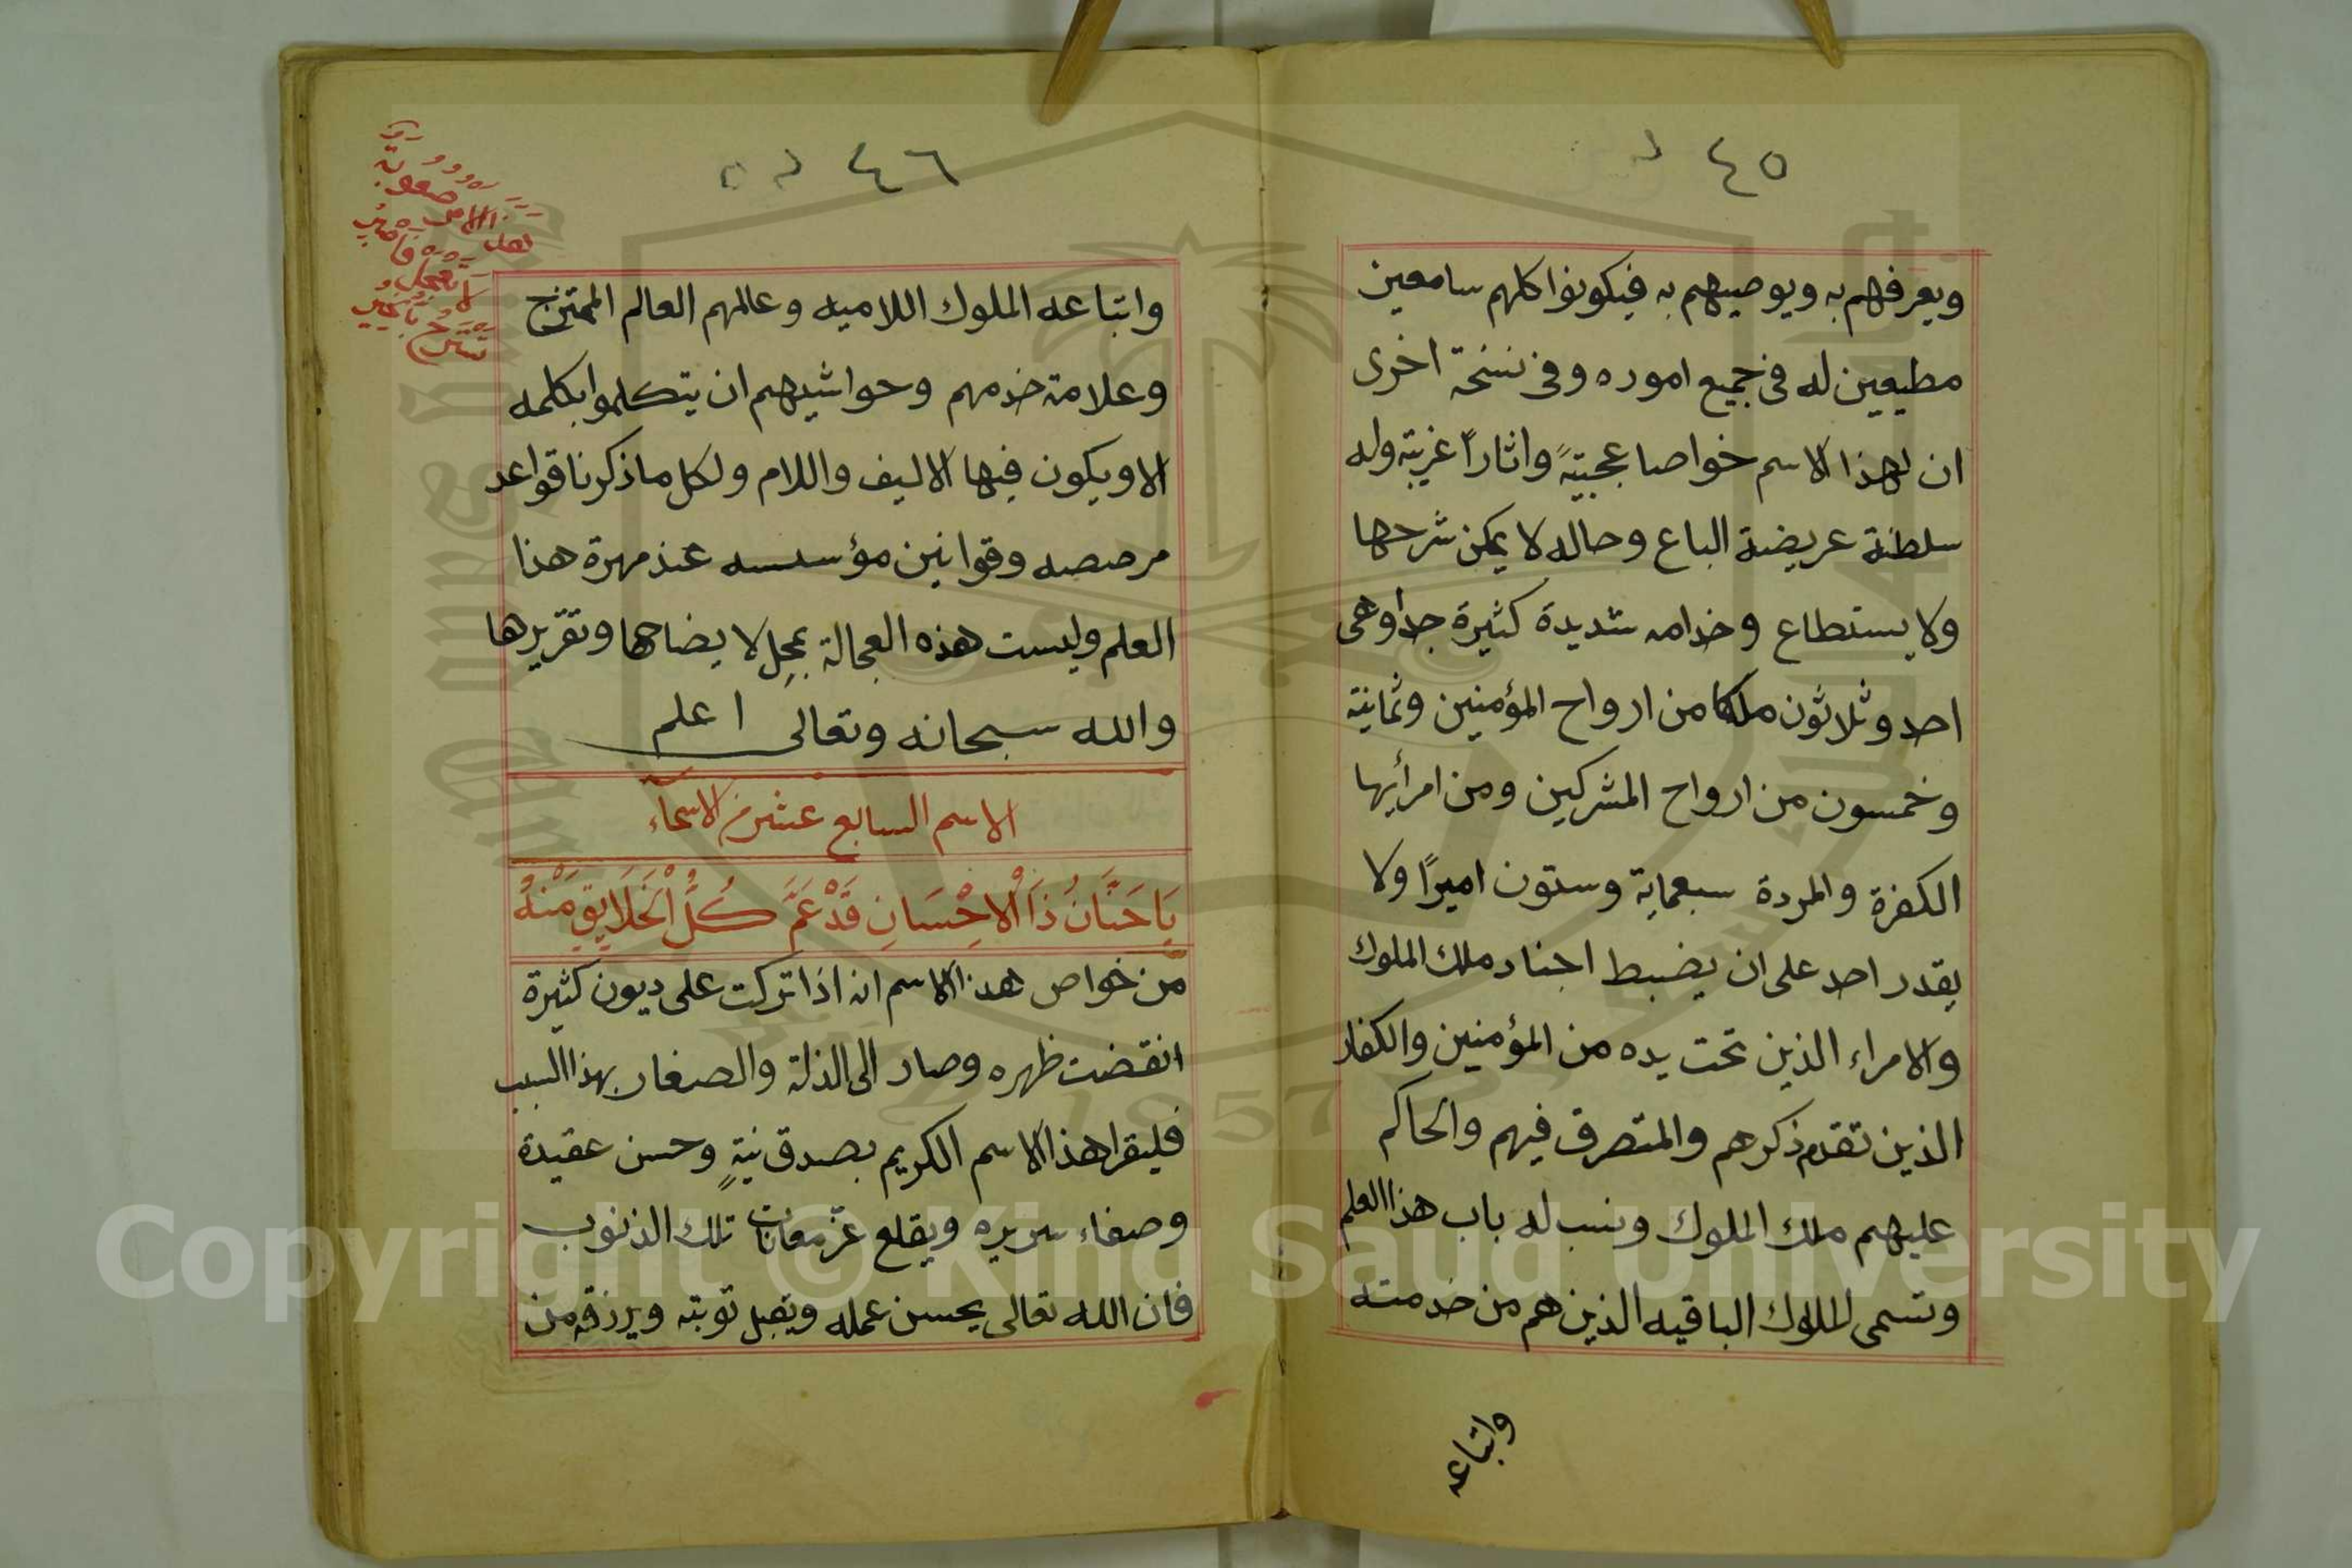 ٤٥
ويعرفهم به ويوصيهم به فيكونوا كلهم سامعين
مطيعين له فى جميع اموره وفى نسخة اخرى
ان لهذا الاسم خواصا عجيبةً واثاراً غريبة وله
سلطنة عريضة الباع وحاله لا يمكن شرحها
ولا يستطاع وخدامه شديدة كثيرة جدا وهى
احد وثلاثون ملكا من ارواح المؤمنين وثمانية
وخمسون من ارواح المشركين ومن امرأيها
الكفرة والمردة سبعماية وستون اميرًا ولا
يقدر احد على ان يضبط اجناد ملك الملوك
والامراء الذين تحت يده من المؤمنين والكفار
الذين تقدم ذكرهم والمتصرف فيهم والحاكم
عليهم ملك الملوك ونسب له باب هذا العلم
وتسمى الملوك الباقيه الذين هم من خدمته
واتباعه
٤٦
واتباعه الملوك اللاميه وعالمهم العالم الممتزج
وعلامة خدمهم وحواشيهم ان يتكلموا بكلمه
الا ويكون فيها الاليف واللام ولكل ما ذكرنا قواعد
مرصصه وقوانين مؤسسه عند مهرة هذا
العلم وليست هذه العجالة بمحل لايضاحها وتقريرها
والله سبحانه وتعالى اعلم
الاسم السابع عشر من الاسماء
يَا حَنَّانُ ذَا الْاِحْسَانِ قَدْ عَمَّ كُلَّ الْخَلَايِقِ مَنْهُ
من خواص هذا الاسم انه اذا تركت على ديون كثيرة
انقضت ظهره وصار الى الذلة والصغار بهذا السبب
فليقرا هذا الاسم الكريم بصدق نيةٍ وحسن عقيدة
وصفاء سريره ويقلع عن تلك الذنوب
فان الله تعالى يحسن عمله ويقبل توبته ويرزقه من
Copyright © King Saud University
1957